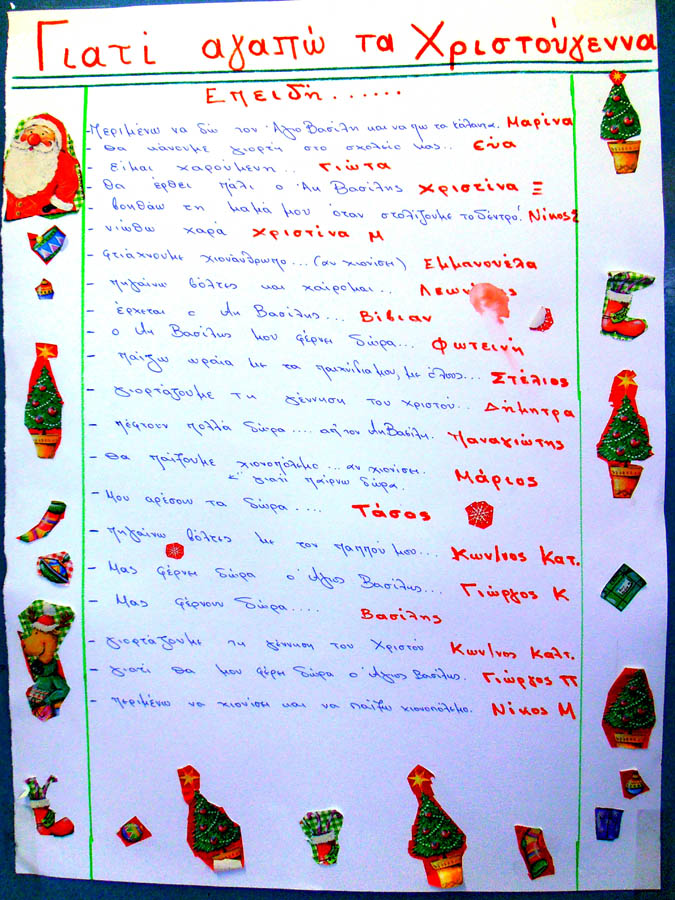 Γιατί αγαπώ τα Χριστούγεννα
Επειδή......
-Περιμένω να δω τον Άγιο Βασίλη και να πω τα κάλαντα. Μαρίνα
- Θα κάνουμε γιορτή στο σχολείο μας.. Εύα
- Είμαι χαρούμενη.. Γιώτα
- Θα έρθει πάλι ο Αη Βασίλης Χριστίνα Ξ
- Βοηθάω τη μαμά μου όταν στολίζουμε το δέντρο! Νίκος Σ
- νιώθω χαρά Χριστίνα Μ
- φτιάχνουμε χιονάνθρωπο...(αν χιονίσει) Εμμανουέλα
- πηγαίνω βόλτες και χαίρομαι..
- έρχεται ο Αη Βασίλης... Βίβιαν
- ο Αη Βασίλης μου φέρνει δώρα... Φωτεινή
- παίζω ωραία με τα παιχνίδια μου, με όλους... Στέλιος
- γιορτάζουμε τη γέννηση του χριστού.. Δήμητρα
- πέφτουν πολλά δώρα.... απ' τον Αη Βασίλη. Παναγιώτης
- Θα παίξουμε χιονοπόλεμο...αν χιονίσει. Μάριος
γιατί παίρνω δώρα.
- Μου αρέσουν τα δώρα.... Τάσος
- πηγαίνω βόλτες με τον παππού μου... Κων/νος Κατ.
- Μας φέρνει δώρα ο Άγιος Βασίλης... Γιώργος Κ
- Μας φέρνουν δώρα.... Βασίλης
- γιορτάζουμε τη γέννηση του Χριστού Κων/νος Καλτ.
- γιατί θα μου φέρει δώρα ο Άγιος Βασίλης. Γιώργος Π
- περιμένω να χιονίσει και να παίξω χιονοπόλεμο. Νίκος Μ